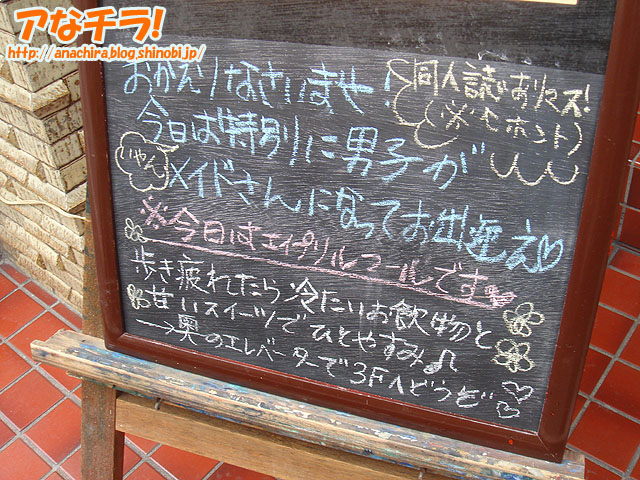 アなチラ!
http://anachira.blog.shinobi.jp/
おかえりなさいませ!
同人誌あります!
(※ホント)
今日は特別に男子が
いやん
メイドさんになってお出迎え♡
※今日はエイプリルフールです
歩き疲れたら冷たいお飲物と
甘いスイーツでひとやすみ♫
→奥のエレベーターで3Fへどうぞ♡